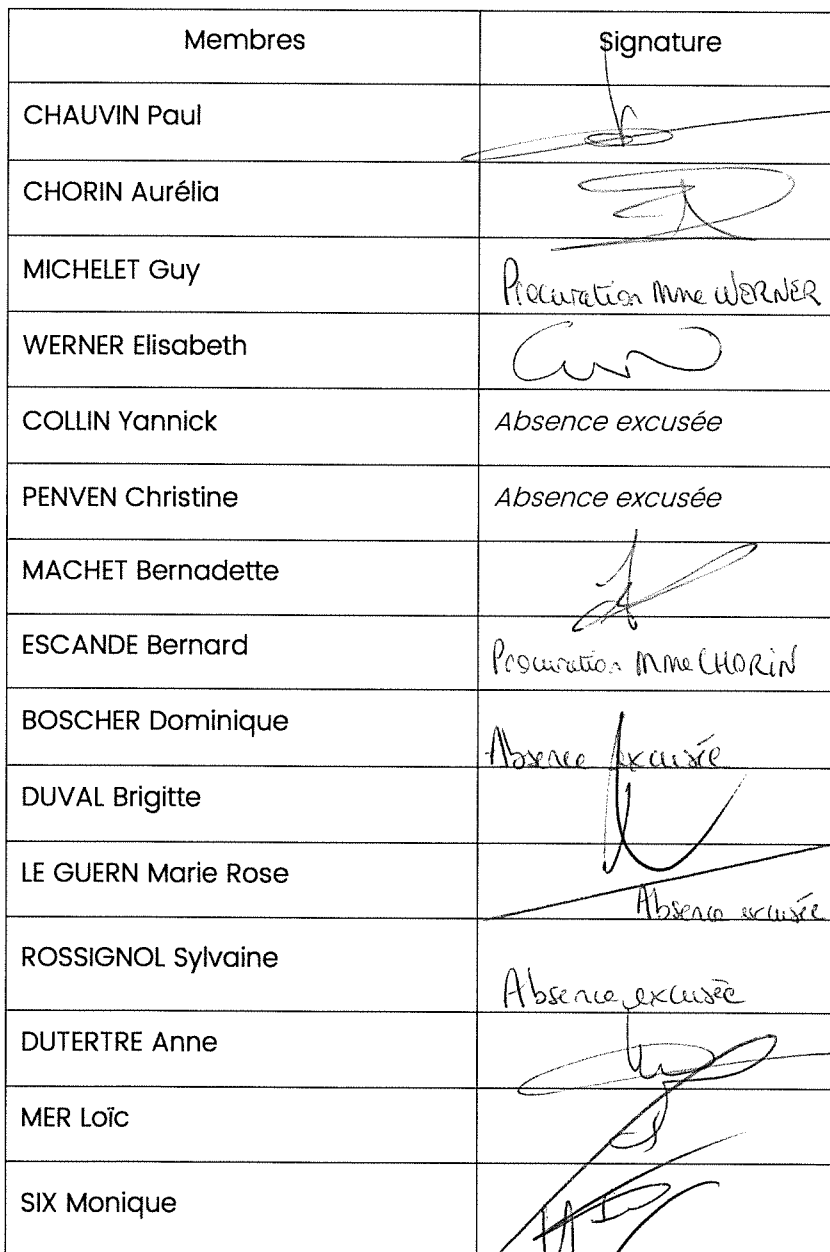 Membres Signature
CHAUVIN Paul
CHORIN Aurélia
MICHELET Guy Procuration Mme WERNER
WERNER Elisabeth
COLLIN Yannick Absence excusée
PENVEN Christine Absence excusée
MACHET Bernadette
ESCANDE Bernard Procuration Mme CHORIN
BOSCHER Dominique Absence excusée
DUVAL Brigitte
LE GUERN Marie Rose Absence excusée
ROSSIGNOL Sylvaine Absence excusée
DUTERTRE Anne
MER Loïc
SIX Monique